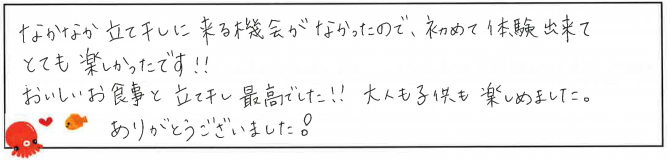 なかなか立て干しに来る機会がなかったので、初めて体験出来て
とても楽しかったです!!
おいしいお食事と立て干し最高でした!! 大人も子供も楽しめました。
ありがとうございました!